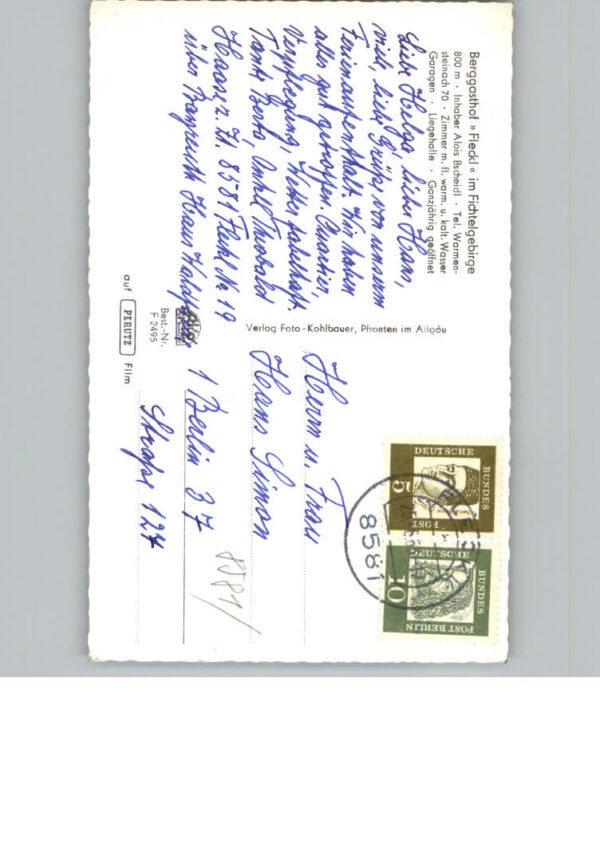 Berggasthof »Fleckl« im Fichtelgebirge
800 m · Inhaber Alois Bscheidl · Tel. Warmen-
steinach 70 · Zimmer m. fl. warm. u. kalt. Wasser
Garagen · Liegehalle · Ganzjährig geöffnet
Liebe Helga, lieber Hans,
liebe Grüße von unserem
Ferienaufenthalt. Wir haben
alles gut getroffen. Quartier,
Verpflegung, Wetter fabelhaft.
Tante Berta, Onkel Theobald
Haase z. Zt. 8581 Fleckl Nr 19
über Bayreuth Haus
Best.-Nr.
F 2495
auf PERUTZ Film
Verlag Foto-Kohlbauer, Pfronten im Allgäu
Herrn u. Frau
Hans Simon
1 Berlin 37
Straße 124
8581/
DEUTSCHE BUNDESPOST
5
DEUTSCHE BUNDESPOST BERLIN
10
8581